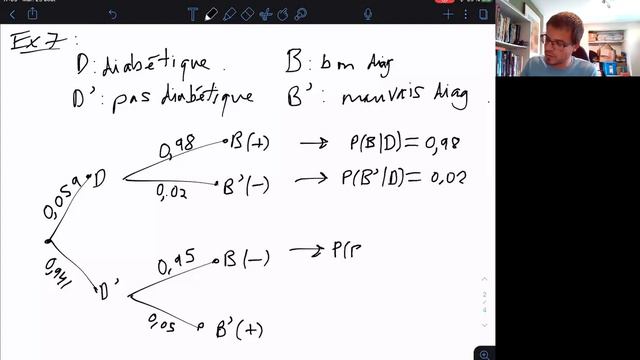 Ex 7:
D: diabétique. B: bon diag
D': pas diabétique B': mauvais diag.
0,059 D 0,98 B(+) → P(B|D)=0,98
0,02 B'(-) → P(B'|D)=0,02
0,941 D' 0,95 B(-) → P(
0,05 B'(+)